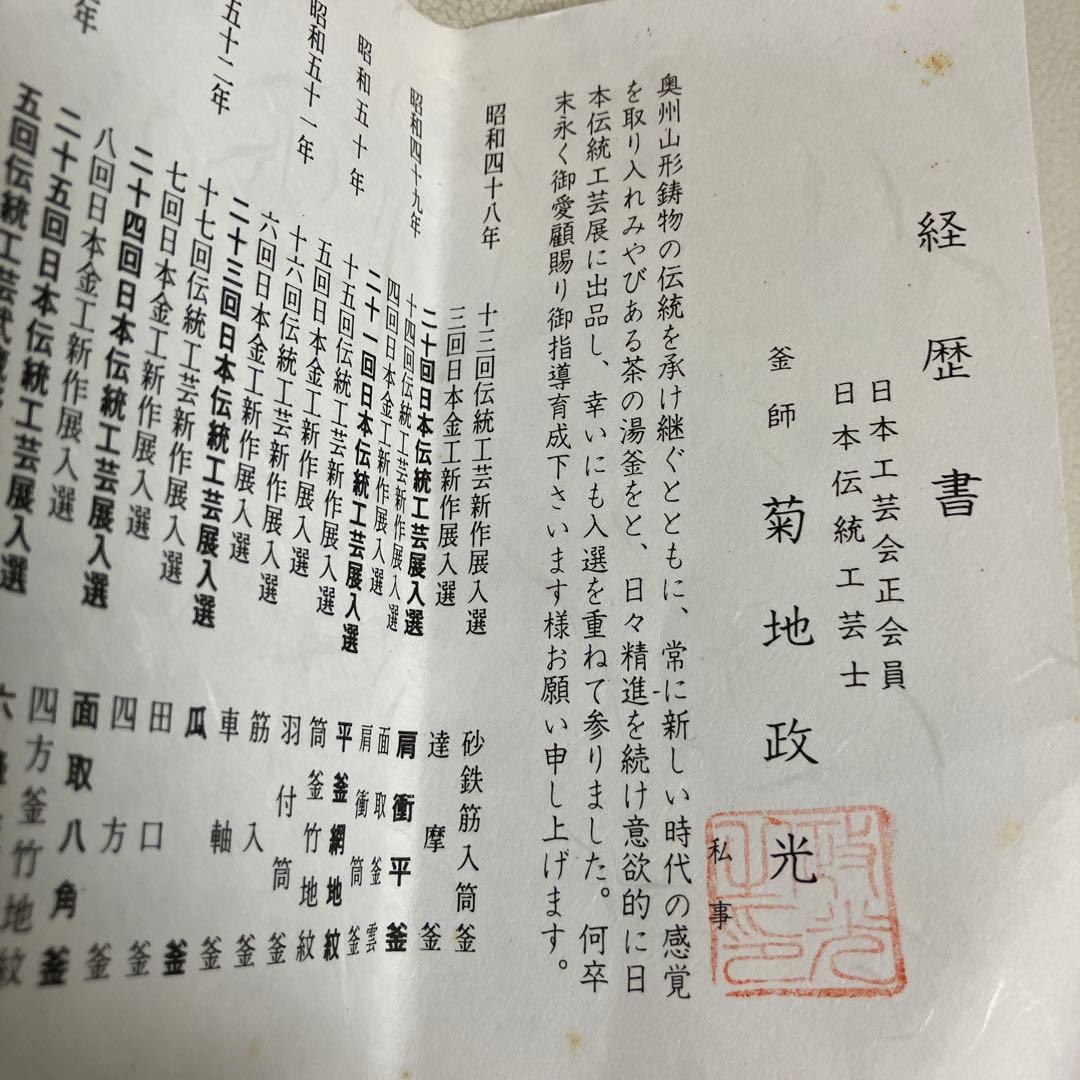 経歴書
日本工芸会正会員
日本伝統工芸士
釜師 菊地政光
私事
奥州山形鋳物の伝統を承け継ぐとともに、常に新しい時代の感覚
を取り入れみやびある茶の湯釜をと、日々精進を続け意欲的に日
本伝統工芸展に出品し、幸いにも入選を重ねて参りました。何卒
末永く御愛顧賜り御指導育成下さいます様お願い申し上げます。
昭和四十八年 十三回伝統工芸新作展入選 砂鉄筋入筒釜
三回日本金工新作展入選 達摩釜
二十回日本伝統工芸展入選 肩衝平釜
昭和四十九年 十四回伝統工芸新作展入選 面取釜雲
四回日本金工新作展入選 肩衝筒釜
二十一回日本伝統工芸展入選 平釜網地紋
昭和五十年 十五回伝統工芸新作展入選 筒釜竹地紋
五回日本金工新作展入選 羽付筒釜
昭和五十一年 十六回伝統工芸新作展入選 筋入釜
六回日本金工新作展入選 車軸釜
二十三回日本伝統工芸展入選 瓜釜
五十二年 十七回伝統工芸新作展入選 田口釜
七回日本金工新作展入選 四方釜
二十四回日本伝統工芸展入選 面取八角釜
年 八回日本金工新作展入選 四方釜竹地紋
二十五回日本伝統工芸展入選 六
五回伝統工芸武